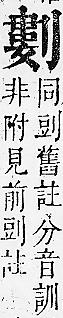 同剅舊註分音訓
非附見前剅註